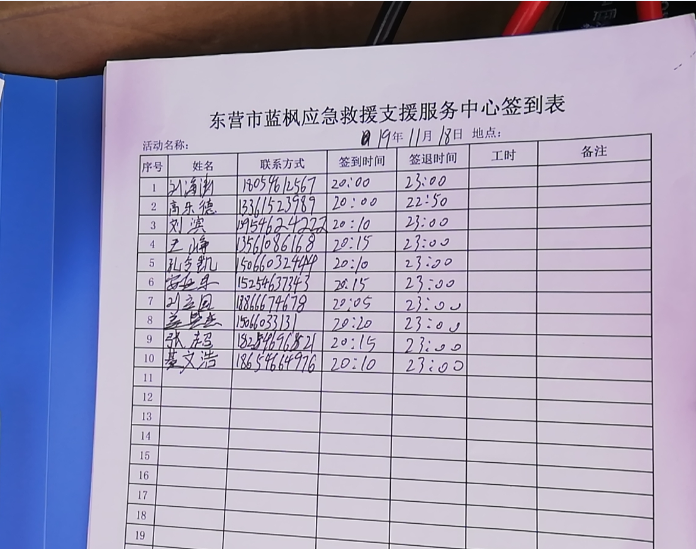 东营市蓝枫应急救援支援服务中心签到表
活动名称: 19年11月18日 地点:
序号 姓名 联系方式 签到时间 签退时间 工时 备注
1 刘海涛 18054612567 20:00 23:00
2 高乐德 13361523989 20:00 22:50
3 刘滨 15954624222 20:10 23:00
4 13561086168 20:15 23:00
5 孔令凯 15066032444 20:10 23:00
6 15254637343 20:15 23:00
7 刘立国 20:05 23:00
8 20:20 23:00
9 张超 20:15 23:00
10 綦文浩 18654664976 20:10 23:00
11
12
13
14
15
16
17
18
19